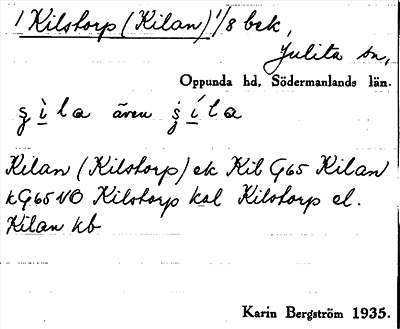 1 Kilstorp (Kilan) 1/8 bek,
Julita sn,
Oppunda hd, Södermanlands län.
även
Kilan (Kilstorp) ek Kil G65 Kilan
kG65NO Kilstorp kal Kilstorp el.
Kilan kb
Karin Bergström 1935.